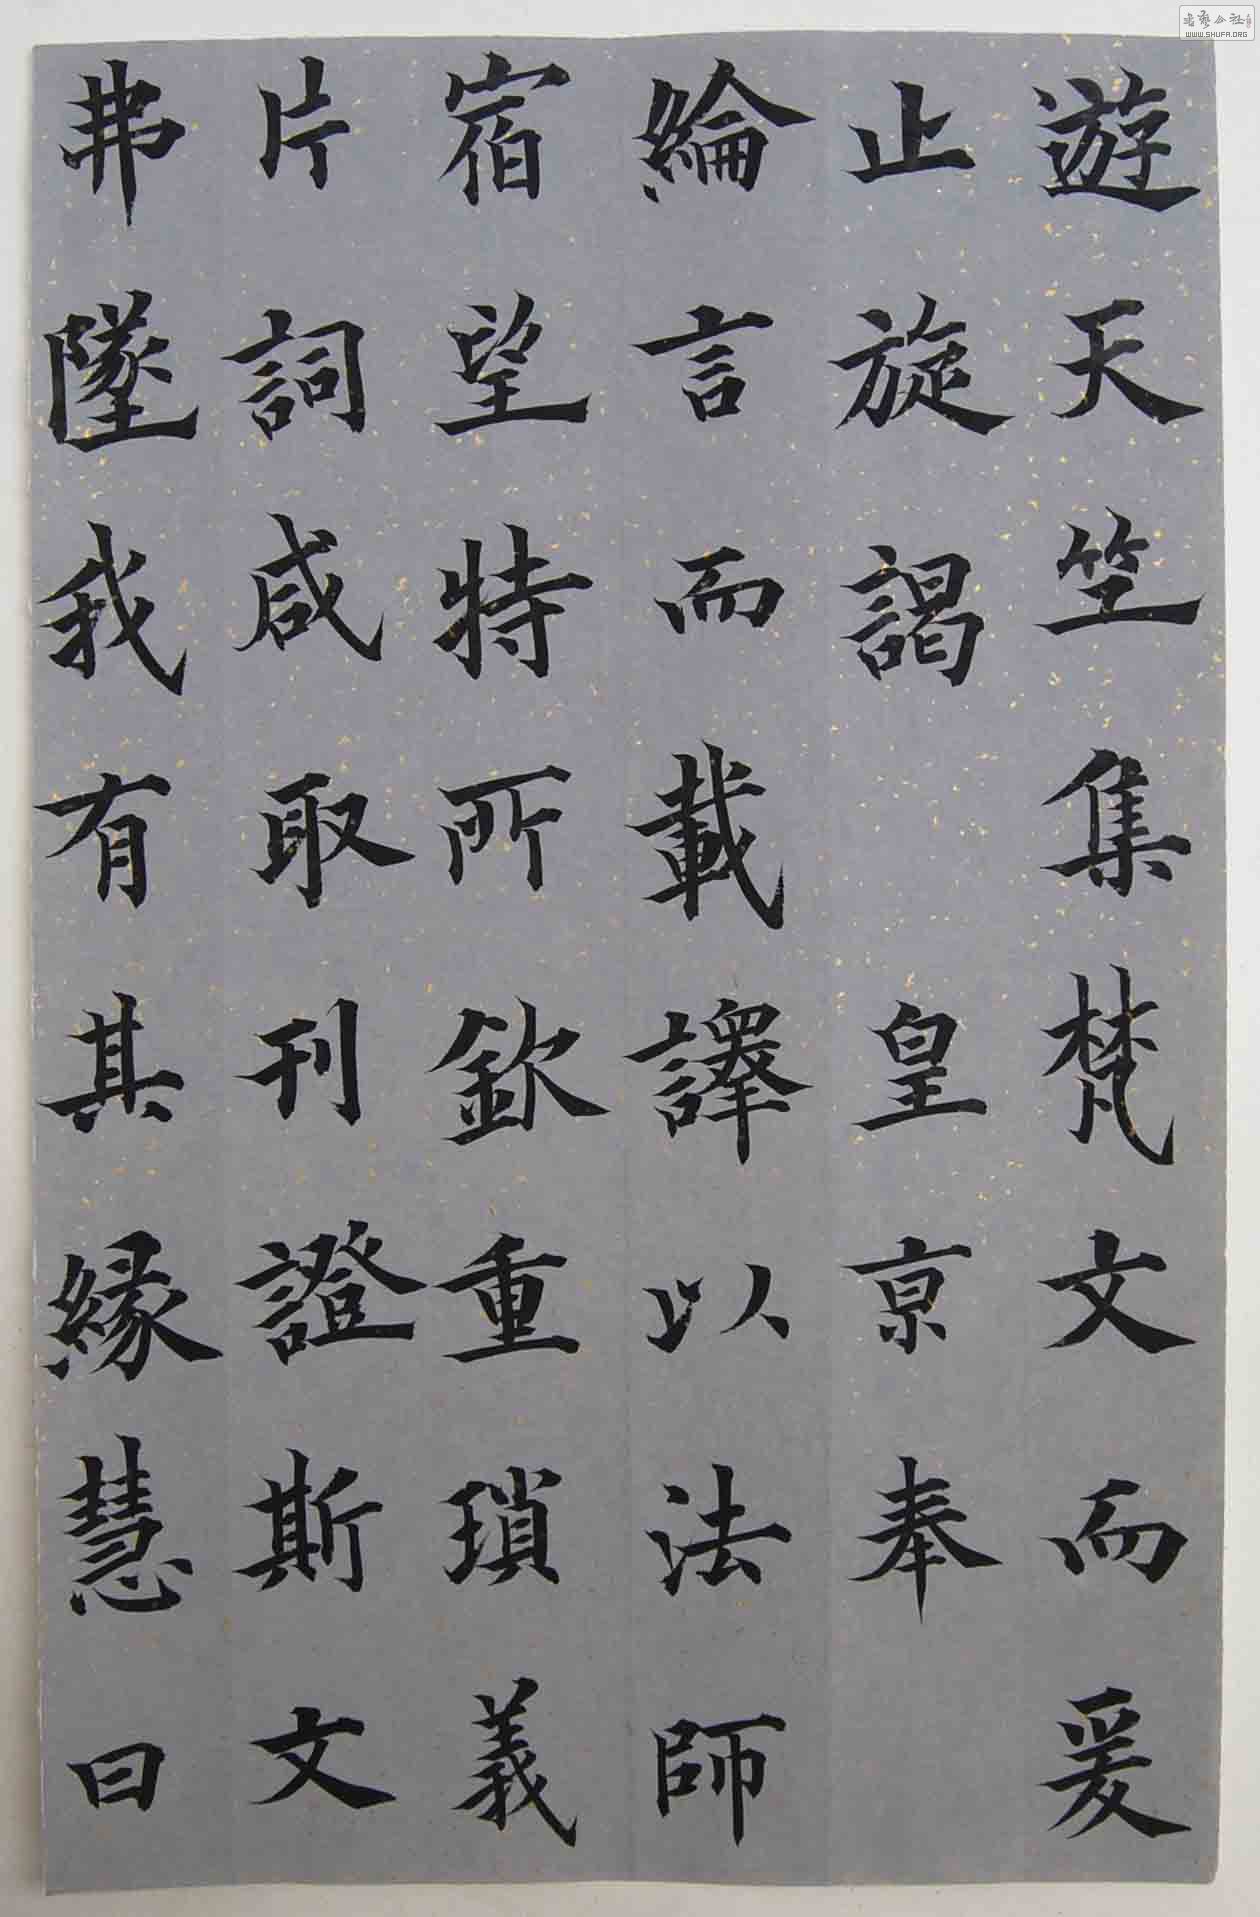 遊天竺集梵文而爰
止旋謁 皇京奉
綸言而載譯以法師
宿望特所欽重瑣義
片詞咸取刊證斯文
弗墜我有其緣慧日
書藝公社
WWW.SHUFA.ORG